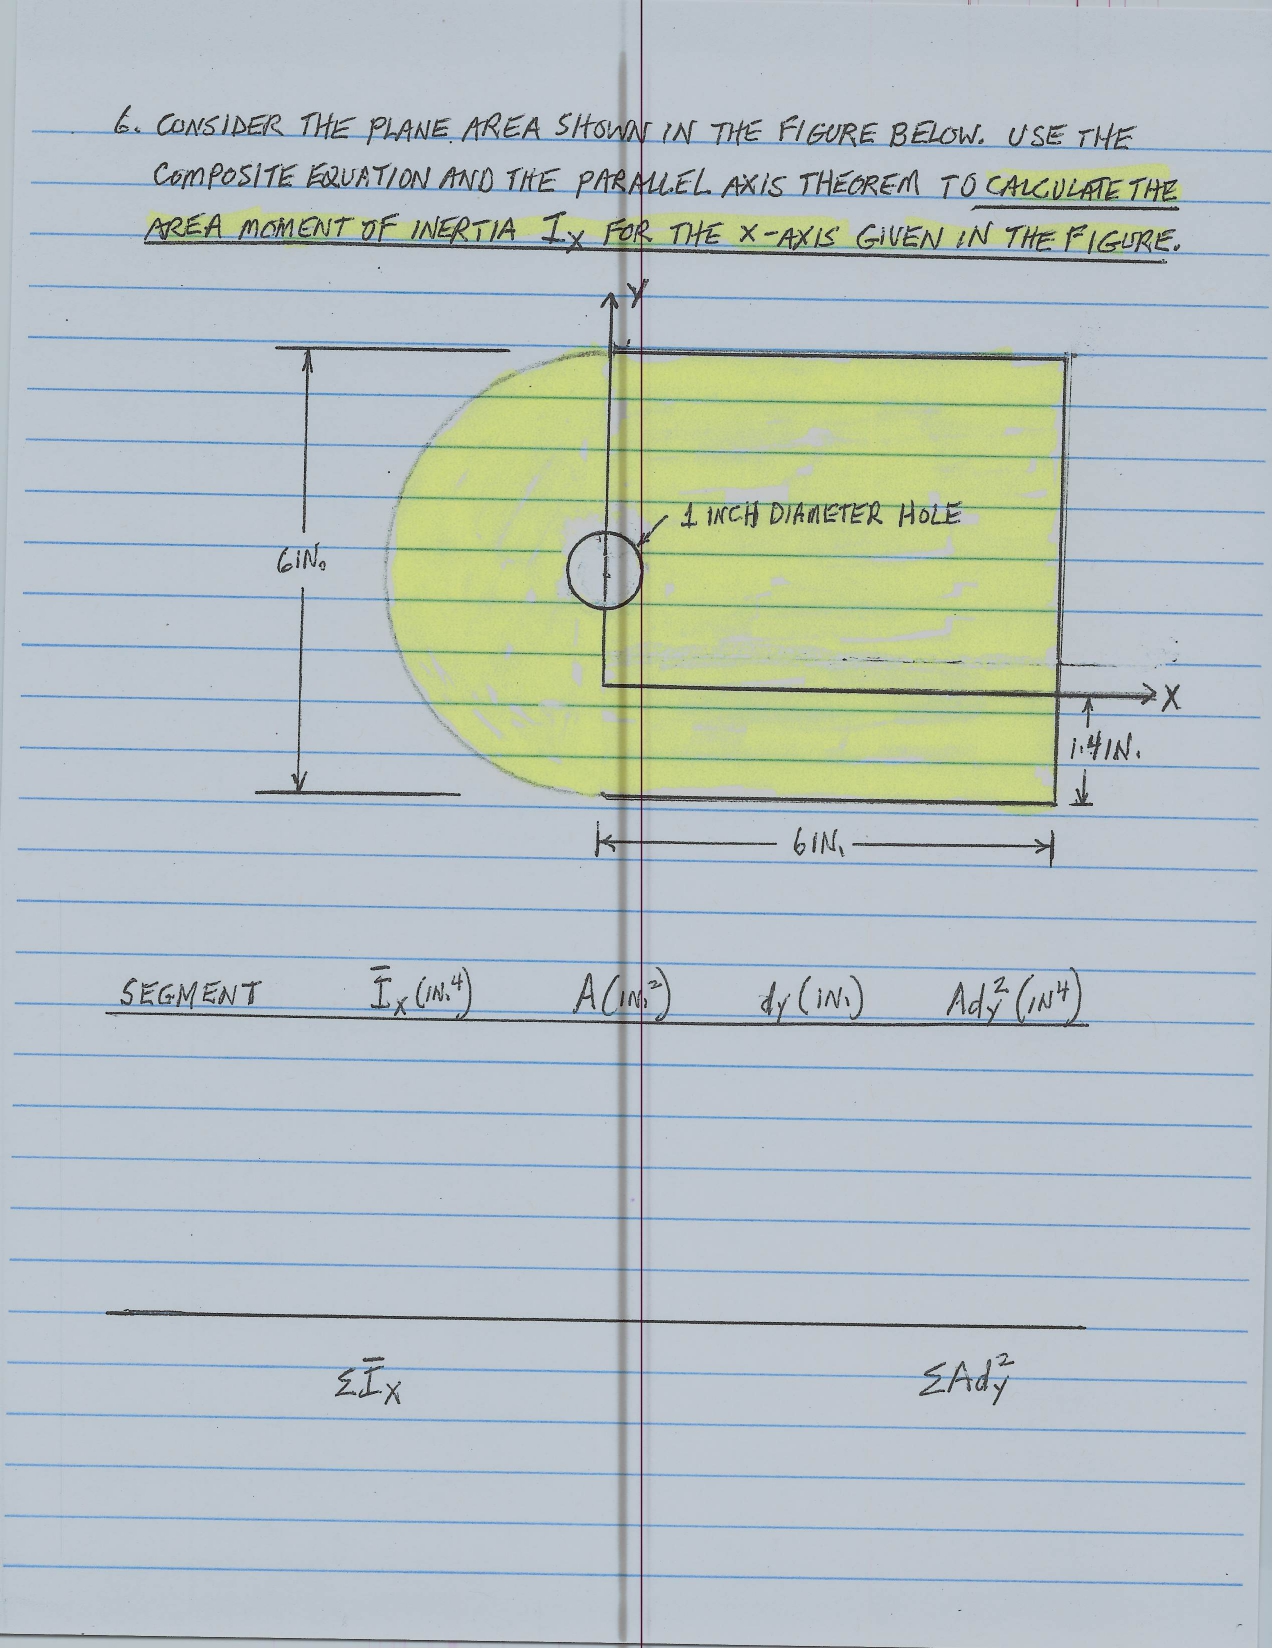 6. CONSIDER THE PLANE AREA SHOWN IN THE FIGURE BELOW. USE THE
COMPOSITE EQUATION AND THE PARALLEL AXIS THEOREM TO CALCULATE THE
AREA MOMENT OF INERTIA Ix FOR THE X-AXIS GIVEN IN THE FIGURE.
Y
1 INCH DIAMETER HOLE
6 IN.
X
1.4 IN.
6 IN.
SEGMENT Īx (IN.⁴) A (IN.²) dy (IN.) Ady² (IN⁴)
ΣĪx ΣAdy²